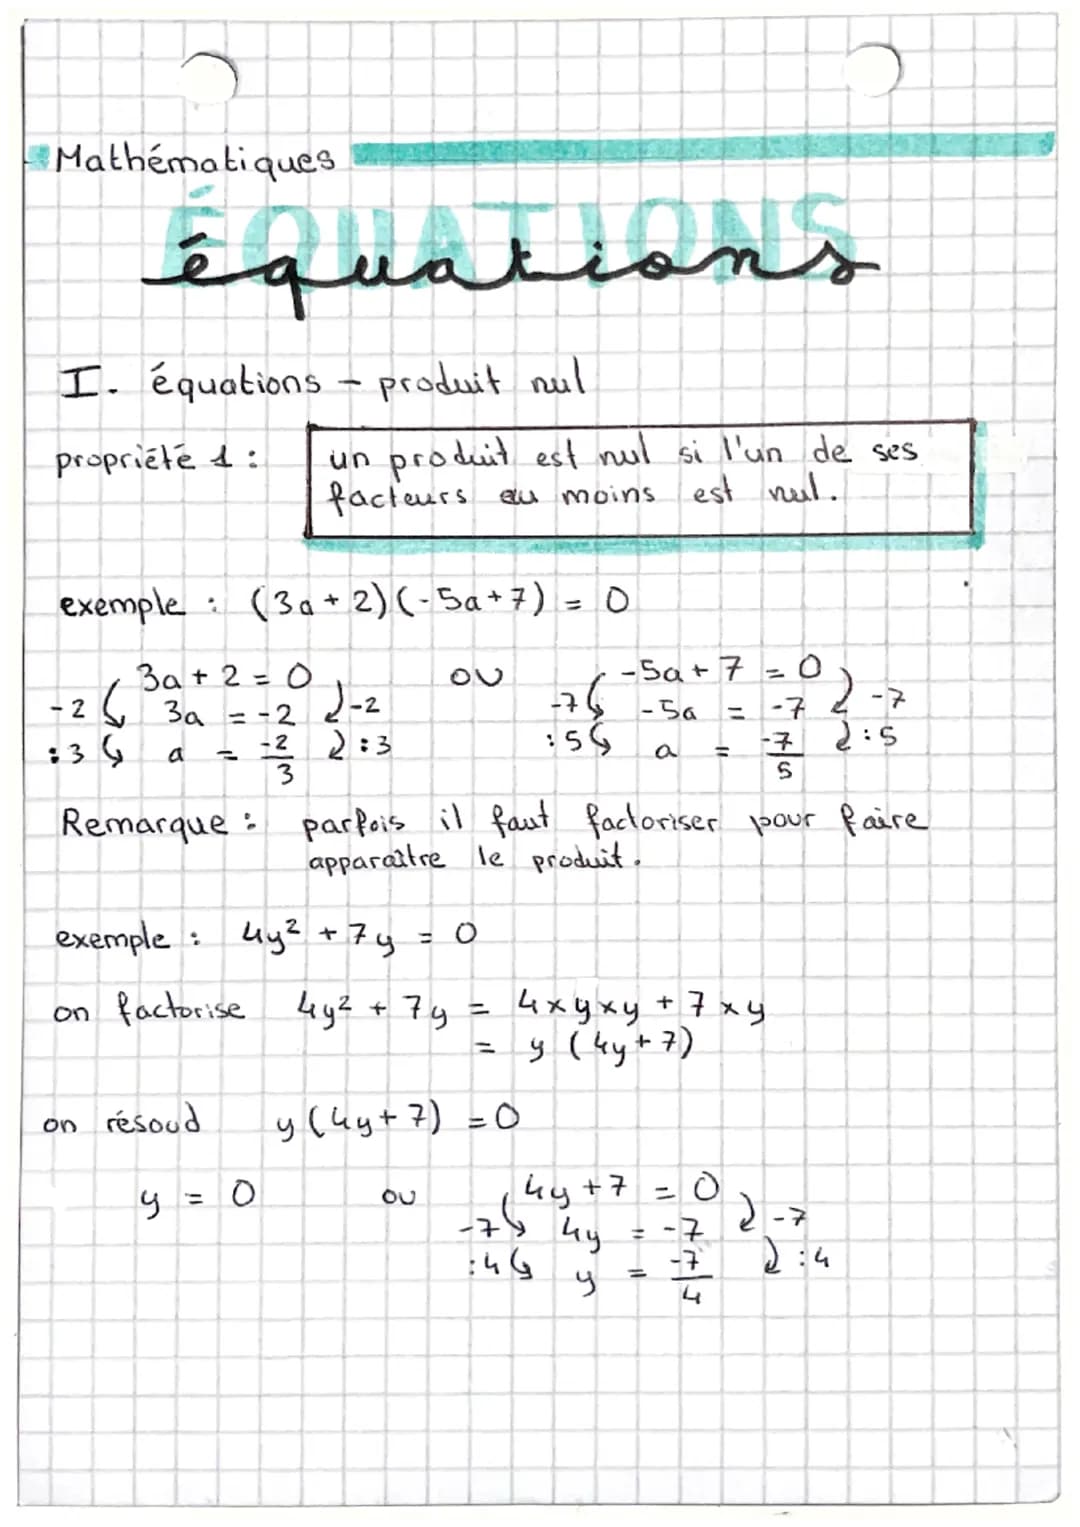 Mathématiques
ÉQUATIONS
équations
I. équations - produit nul
propriété 1 : un produit est nul si l'un de ses
facteurs au moins est nul.
exemple : (3a + 2)(-5a+7) = 0
3a + 2 = 0 ou -5a + 7 = 0
-2 3a = -2 -2 -7 -5a = -7 -7
:3 a = -2/3 :3 :5 a = -7/5 :5
Remarque : parfois il faut factoriser pour faire
apparaître le produit.
exemple : 4y² + 7y = 0
on factorise 4y² + 7y = 4xyxy + 7xy
= y (4y+7)
on résoud y (4y+7) = 0
y = 0 ou 4y + 7 = 0
-7 4y = -7 -7
:4 y = -7/4 :4